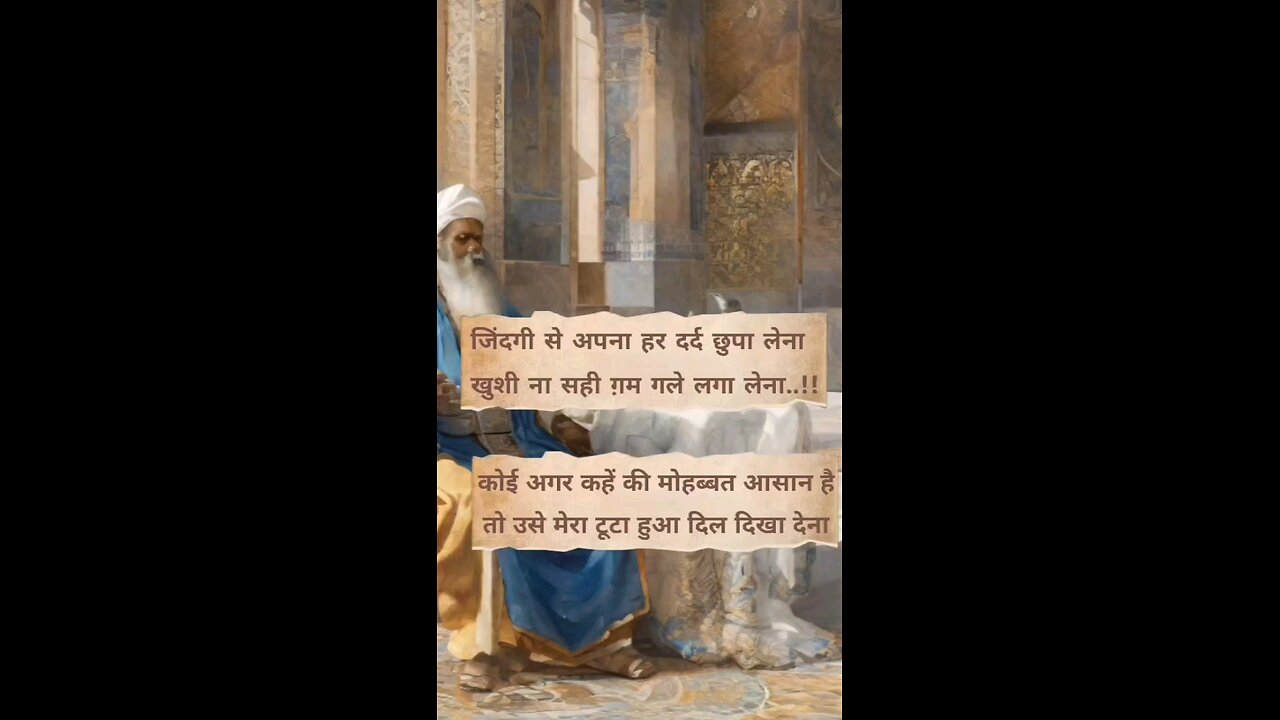 जिंदगी से अपना हर दर्द छुपा लेना
खुशी ना सही ग़म गले लगा लेना..!!
कोई अगर कहें की मोहब्बत आसान है
तो उसे मेरा टूटा हुआ दिल दिखा देना